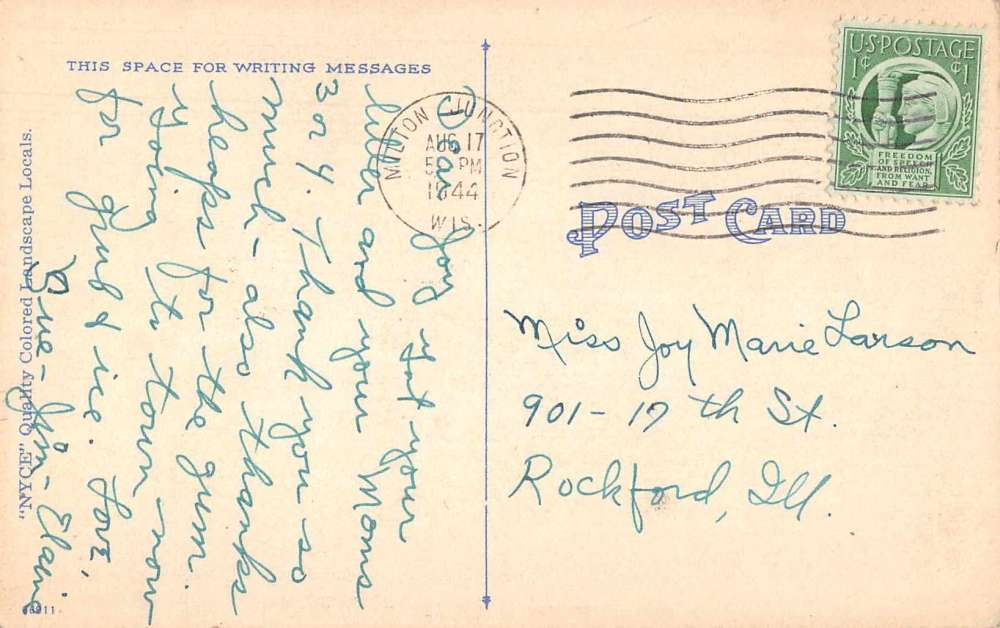 THIS SPACE FOR WRITING MESSAGES
Dear Joy Got your
letter and your Moms
3 or 4. Thank you so
much - also thanks
heaps for the gum.
Going to town now
for grub & ice. Love,
Sue - Jim - Elaine
"NYCE" Quality Colored Landscape Locals.
MILTON JUNCTION
AUG 17
5 PM
1944
WIS.
U.S. POSTAGE
1¢ ¢1
FREEDOM
OF SPEECH
AND RELIGION,
FROM WANT
AND FEAR
POST CARD
Miss Joy Marie Larson
901 - 17th St.
Rockford, Ill.